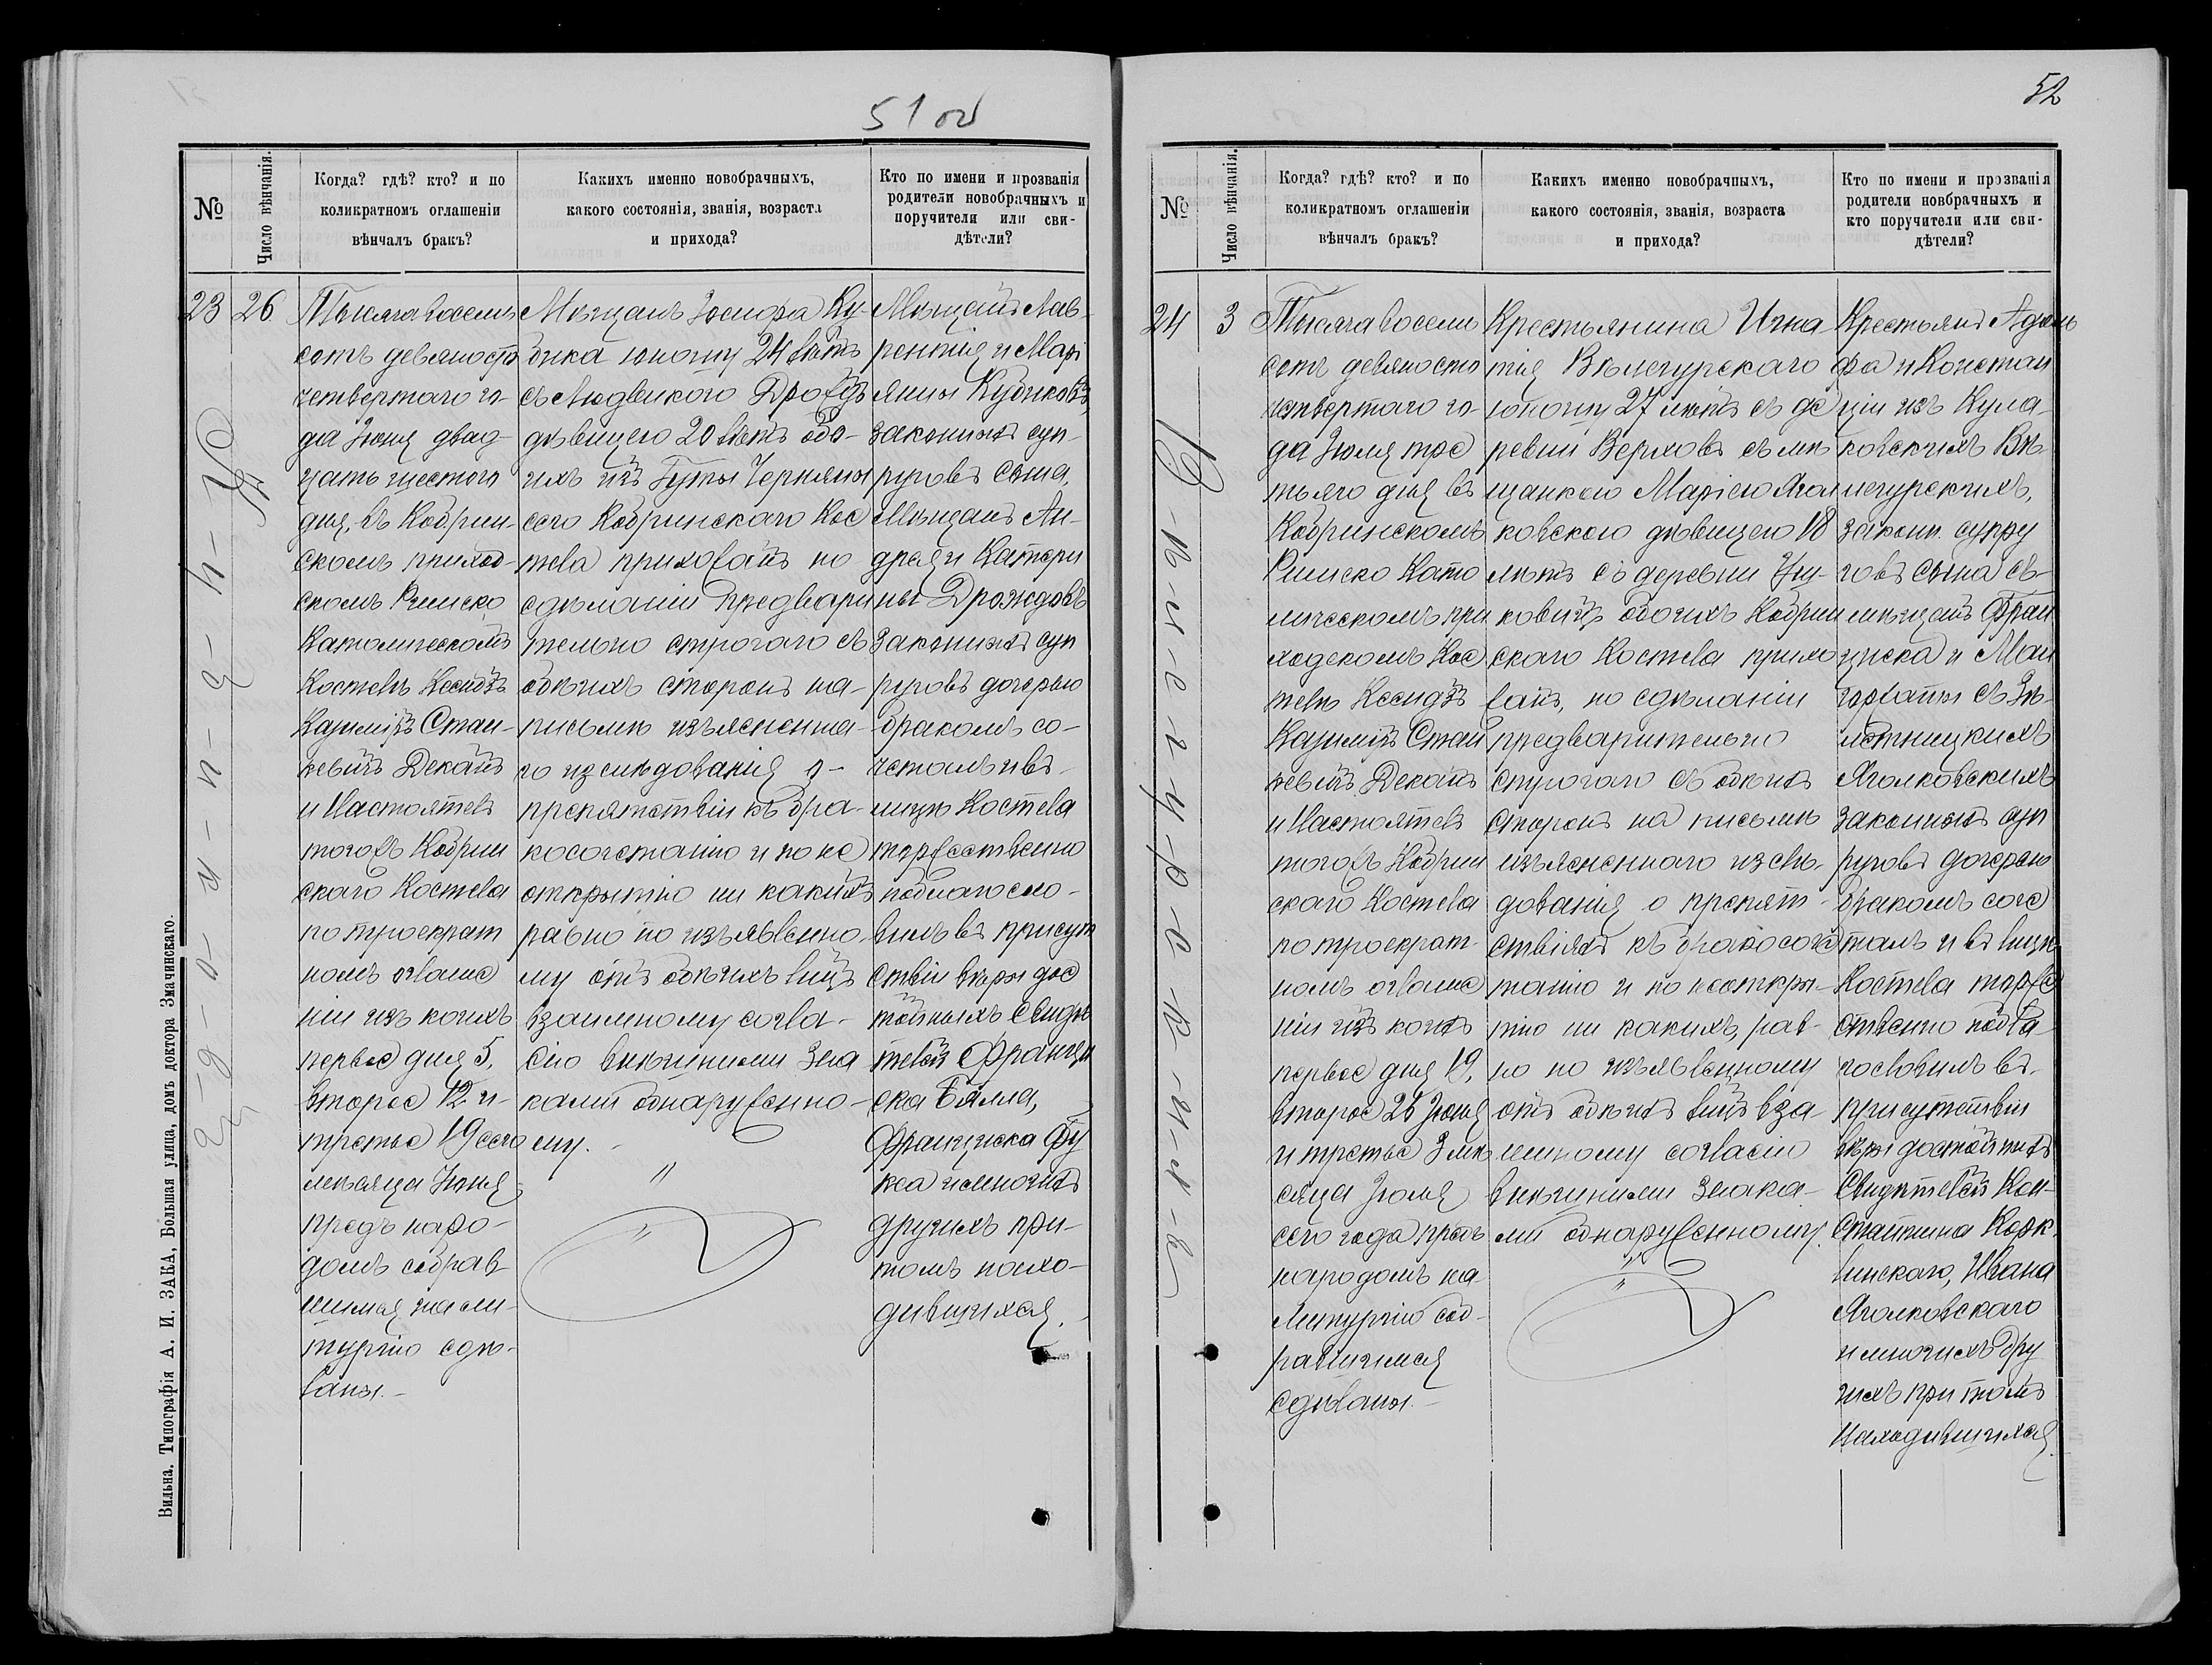 51 об
№
Число вѣнчанія.
Когда? гдѣ? кто? и по
коликратномъ оглашеніи
вѣнчалъ бракъ?
Какихъ именно новобрачныхъ,
какого состоянія, званія, возраста
и прихода?
Кто по имени и прозванія
родители новобрачныхъ и
поручители или сви-
дѣтели?
23
26
Тысяча восемь
сотъ девяносто
четвертаго го-
да Іюня двад-
цать шестого
дня, въ Кобрин-
скомъ приход-
скомъ Римско
Католическомъ
Костелѣ Ксендзъ
Казиміръ Стан-
кевичъ Деканъ
и Настоятель
тогожъ Кобрин
скаго Костела
по троекрат
номъ оглаше
ніи изъ коихъ
первое дня 5,
второе 12 и
третье 19 сего
мѣсяца Іюня
предъ наро-
домъ собрав
шимся на ли-
тургію сдѣ-
ланы.-
Мѣщанъ Іосифа Ку-
бика юношу 24 лѣтъ
съ Людвикою Дроздъ
дѣвицею 20 лѣтъ обо-
ихъ изъ Гуты Черняны
сего Кобринскаго Кос
тела прихожанъ по
сдѣланіи предвари
тельно строгаго съ
обѣихъ сторонъ на-
письмѣ изъясненна-
го изслѣдованія о-
препятствіи къ бра-
косочетанію и по не
открытію ни какихъ
равно по изъявленно-
му отъ обѣихъ лицъ
взаимному согла-
сію внѣшними зна
ками обнаруженно-
му.
Мѣщанъ Лав-
рентія и Марі
янны Кубиковъ,
законныхъ суп-
руговъ сына,
Мѣщанъ Ан-
дрея и Катери
ны Дроздовъ
законныхъ суп
руговъ дочерью
бракомъ со-
четалъ и въ
лицѣ Костела
торжественно
поблагосло-
вилъ въ присут
ствіи вѣры дос
тойныхъ Свидѣ
телей Францы
ска Бялла,
Франциска Фу
кса и многихъ
другихъ при-
томъ нахо-
дившихся.
Вильна. Типографія А. И. ЗАКА, Большая улица, домъ доктора Змачинскаго.
52
№
Число вѣнчанія.
Когда? гдѣ? кто? и по
коликратномъ оглашеніи
вѣнчалъ бракъ?
Какихъ именно новобрачныхъ,
какого состоянія, званія, возраста
и прихода?
Кто по имени и прозванія
родители новбрачныхъ и
кто поручители или сви-
дѣтели?
24
3
Тысяча восемь
сотъ девяносто
четвертаго го-
да Іюля тре
тьяго дня въ
Кобринскомъ
Римско Като
лическомъ при
ходскомъ Кос
телѣ Ксендзъ
Казиміръ Стан
кевичъ Деканъ
и Настоятель
тогожъ Кобрин
скаго Костела
по троекрат-
номъ оглаше
ніи изъ коихъ
первое дня 19,
второе 26 Іюня
и третье 3 мѣ
сяца Іюля
сего года предъ
народомъ на
Литургію соб-
равшимся
сдѣланы.-
Крестьянина Игна-
тія Вѣлегурскаго
юношу 27 лѣтъ съ де
ревни Верховъ съ мѣ
щанкою Маріею Ягол
ковскою дѣвицею 18
лѣтъ съ деревни
обоихъ Кобрин
скаго Костела прихо
жанъ, по сдѣланіи
предварительно
строгаго съ обѣихъ
сторонъ на письмѣ
изъясненнаго изслѣ-
дованія о препят-
ствіяхъ къ бракосоче
танію и по неоткры-
тію ни какихъ, рав-
но по изъявленному
отъ обѣихъ лицъ вза
имному согласію
внѣшними знака-
ми обнаруженному.
Крестьянъ Адоль
фа и Констан
ціи изъ Кула-
ковскихъ Вѣ-
легурскихъ,
законн. супру
говъ сына съ
мѣщанъ Фран
циска и Мал
горжаты съ
Яголковскихъ
законныхъ суп
руговъ дочерью
бракомъ соче
талъ и въ лицѣ
Костела торже
ственно побла
гословилъ въ
присутствіи
вѣры достойныхъ
Свидѣтелей Кон-
стантина
Ивана
Яголковскаго
и многихъ дру
гихъ при томъ
находившихся.